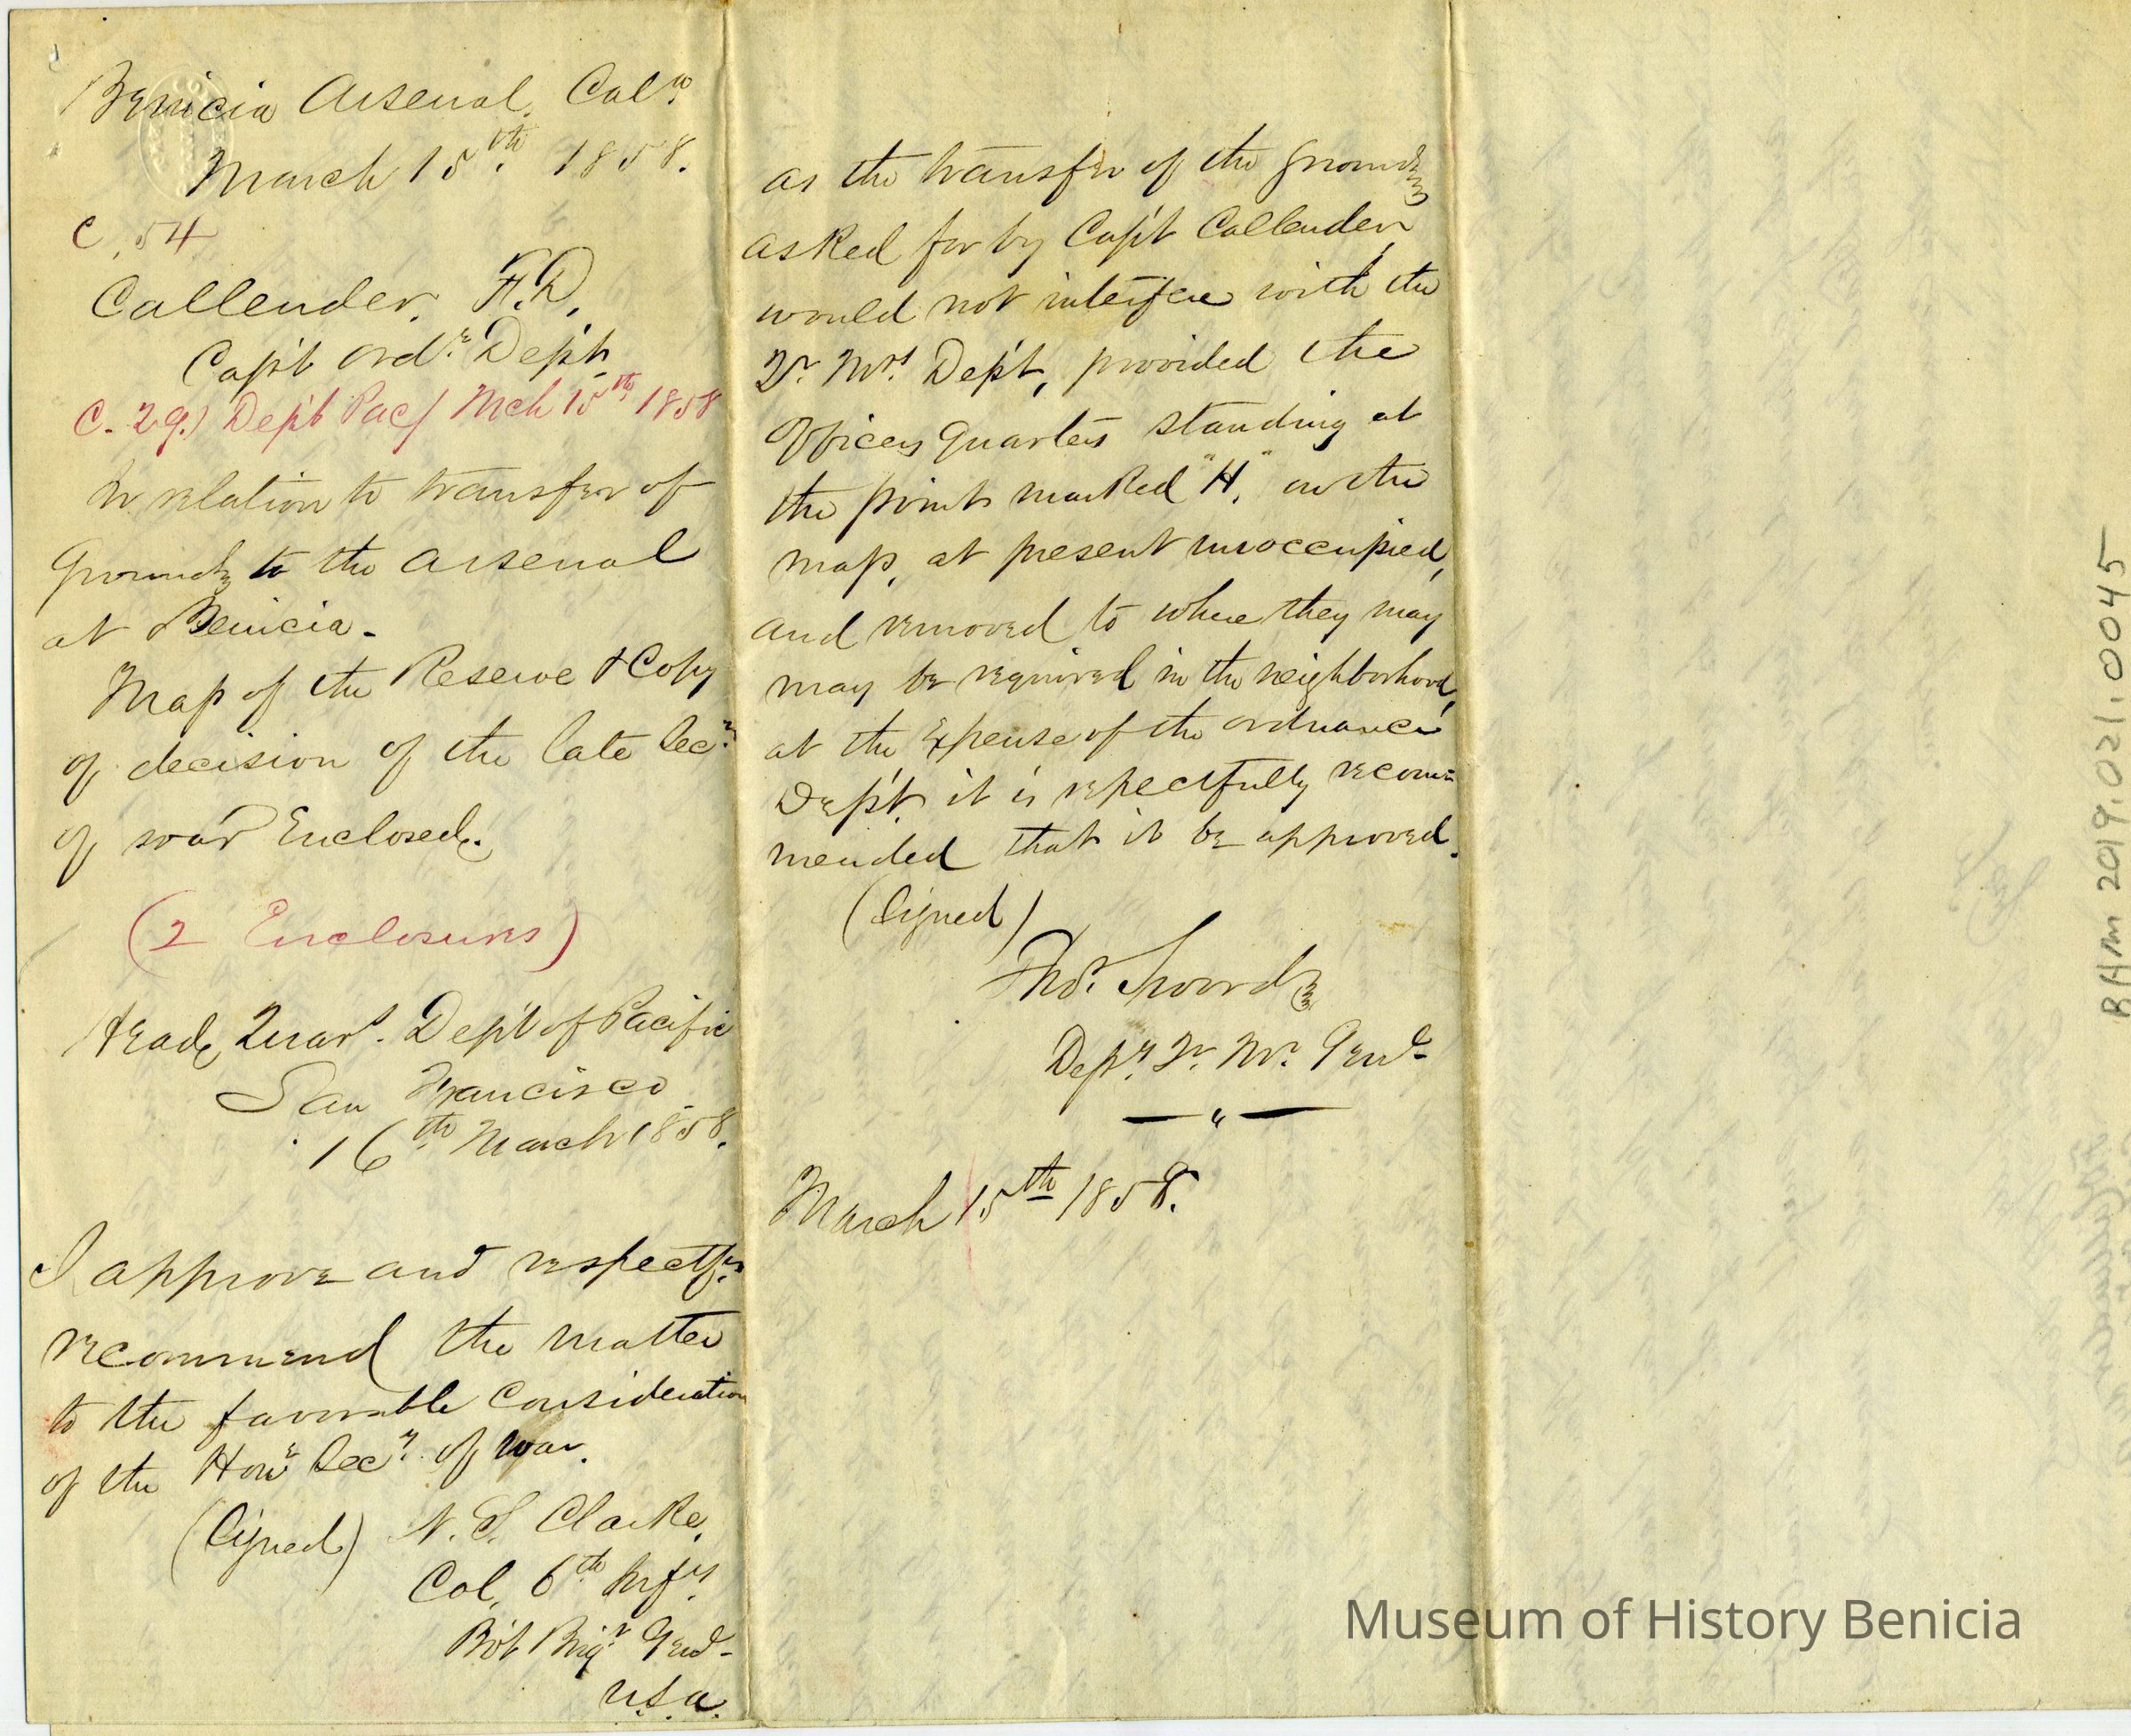 Benicia Arsenal, Cala.
March 15th. 1858.
C. 54
Callender, F.D.
Cap't Ord.e Dep't
C. 29.) Dep't Pac/ Mch 15th 1858
In relation to transfer of
Grounds to the Arsenal
at Benicia.
Map of the Reserve & Copy
of decision of the late Secy.
of war Enclosed.
(2 Enclosures)
Head Quars. Dep't of Pacific
San Francisco
16th March 1858.
I approve and respectfy.
recommend the matter
to the favorable consideration
of the Hone Secy. of War.
(Signed) N. S. Clarke,
Col, 6th Infy.
Bv't Brigr Genl.
U.S.A.
as the transfer of the grounds
asked for by Cap't Callender,
would not interfere with the
Qr. Mrs. Dep't, provided the
Officers Quarters standing at
the point marked "H," on the
map, at present unoccupied,
and removed to where they may
may be required in the neighborhood,
at the Expense of the ordnance
Dep't. it is respectfully recom=
mended that it be approved.
(Signed)
Thos. Swords
Depy. Qr. Mr. Genl.
— " —
March 15th 1858.
BHM 2019.021.0045
Museum of History Benicia